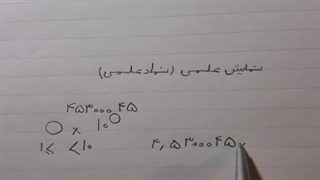 نمایش علمی (نماد علمی)
۴۵۳۰۰۰۴۵
○ × ۱۰○
۱≤ <۱۰
۴,۵۳۰۰۰۴۵×